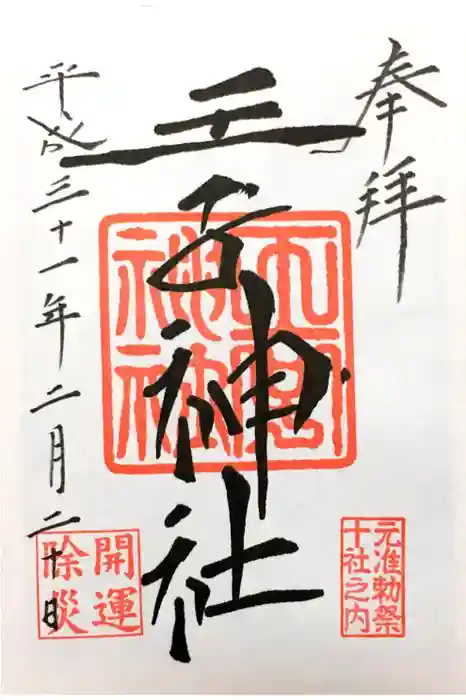 奉拝
元准勅祭
十社之内
王子神社
開運
除災
平成三十一年二月二十日